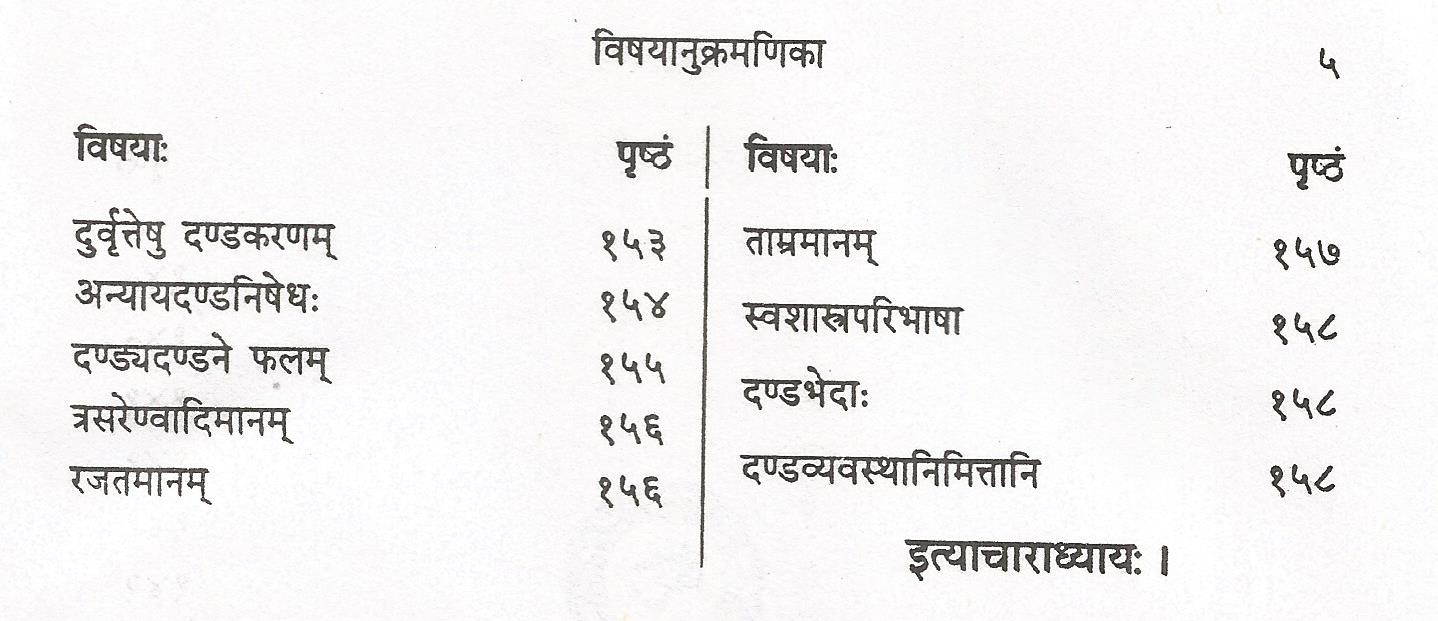 विषयानुक्रमणिका ५
विषयाः पृष्ठं
दुर्वृत्तेषु दण्डकरणम् १५३
अन्यायदण्डनिषेधः १५४
दण्ड्यदण्डने फलम् १५५
त्रसरेण्वादिमानम् १५६
रजतमानम् १५६
विषयाः पृष्ठं
ताम्रमानम् १५७
स्वशास्त्रपरिभाषा १५८
दण्डभेदाः १५८
दण्डव्यवस्थानिमित्तानि १५८
इत्याचाराध्यायः ।